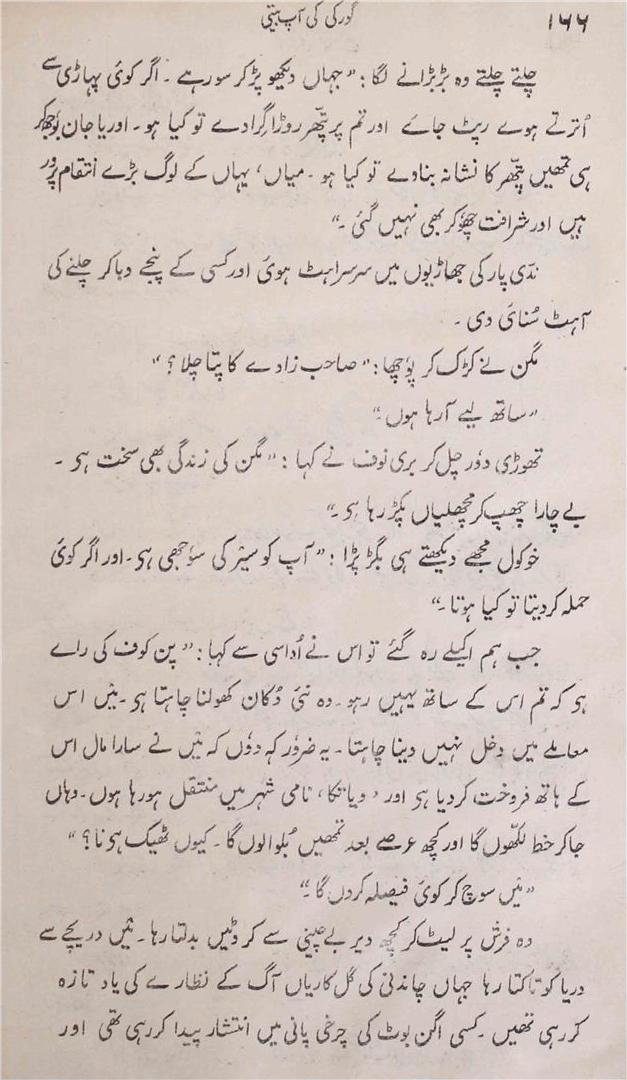 ۱۶۶ گورکی کی آپ بیتی
چلتے چلتے وہ بڑبڑانے لگا: "جہاں دیکھو پڑکر سو رہے ۔ اگر کوئ پہاڑی سے
اُترتے ہوے رپٹ جاے اور تم پر پتّھر روڑا گرادے تو کیا ہو ۔ اور یا جان بوٗجھ کر
ہی تمھیں پتّھر کا نشانہ بناوے تو کیا ہو ۔ میاں، یہاں کے لوگ بڑے انتقام پرور
ہیں اور شرافت چھوٗکر بھی نہیں گئی ۔"
ندّی پار کی جھاڑیوں میں سرسراہٹ ہوئ اور کسی کے پنجے دباکر چلنے کی
آہٹ سُنائ دی ۔
مگن نے کڑک کر پوٗچھا: "صاحب زادے کا پتا چلا؟"
"ساتھ لیے آرہا ہوں ۔"
تھوڑی دوٗر چل کر بری نوف نے کہا: "مگن کی زندگی بھی سخت ہی ۔
بے چارا چھپ کر مچھلیاں پکڑ رہا ہی ۔"
خوکول مجھے دیکھتے ہی بگڑ پڑا: "آپ کو سیر کی سوٗجھی ہی ۔ اور اگر کوئ
حملہ کردیتا تو کیا ہوتا ۔"
جب ہم اکیلے رہ گئے تو اس نے اُداسی سے کہا: "پن کوف کی راے
ہی کہ تم اس کے ساتھ یہیں رہو ۔ وہ نئی دُکان کھولنا چاہتا ہی ۔ میٔں اس
معاملے میں دخل نہیں دینا چاہتا ۔ یہ ضروٗر کہ دوٗں کہ میٔں نے سارا مال اس
کے ہاتھ فروخت کردیا ہی اور 'ویاتکا، نامی شہر میں منتقل ہورہا ہوں ۔ وہاں
جاکر خط لکھّوں گا اور کچھ عرصے بعد تمھیں بُلوالوں گا ۔ کیوں ٹھیک ہی نا؟"
"میٔں سوچ کر کوئ فیصلہ کردں گا ۔"
وہ فرش پر لیٹ کر کچھ دیر بے چینی سے کروٹیں بدلتا رہا ۔ میٔں دریچے سے
دریا کو تاکتا رہا جہاں چاندنی کی گل کاریاں آگ کے نظارے کی یاد تازہ
کررہی تھیں ۔ کسی اگن بوٹ کی چرخی پانی میں انتشار پیدا کررہی تھی اور